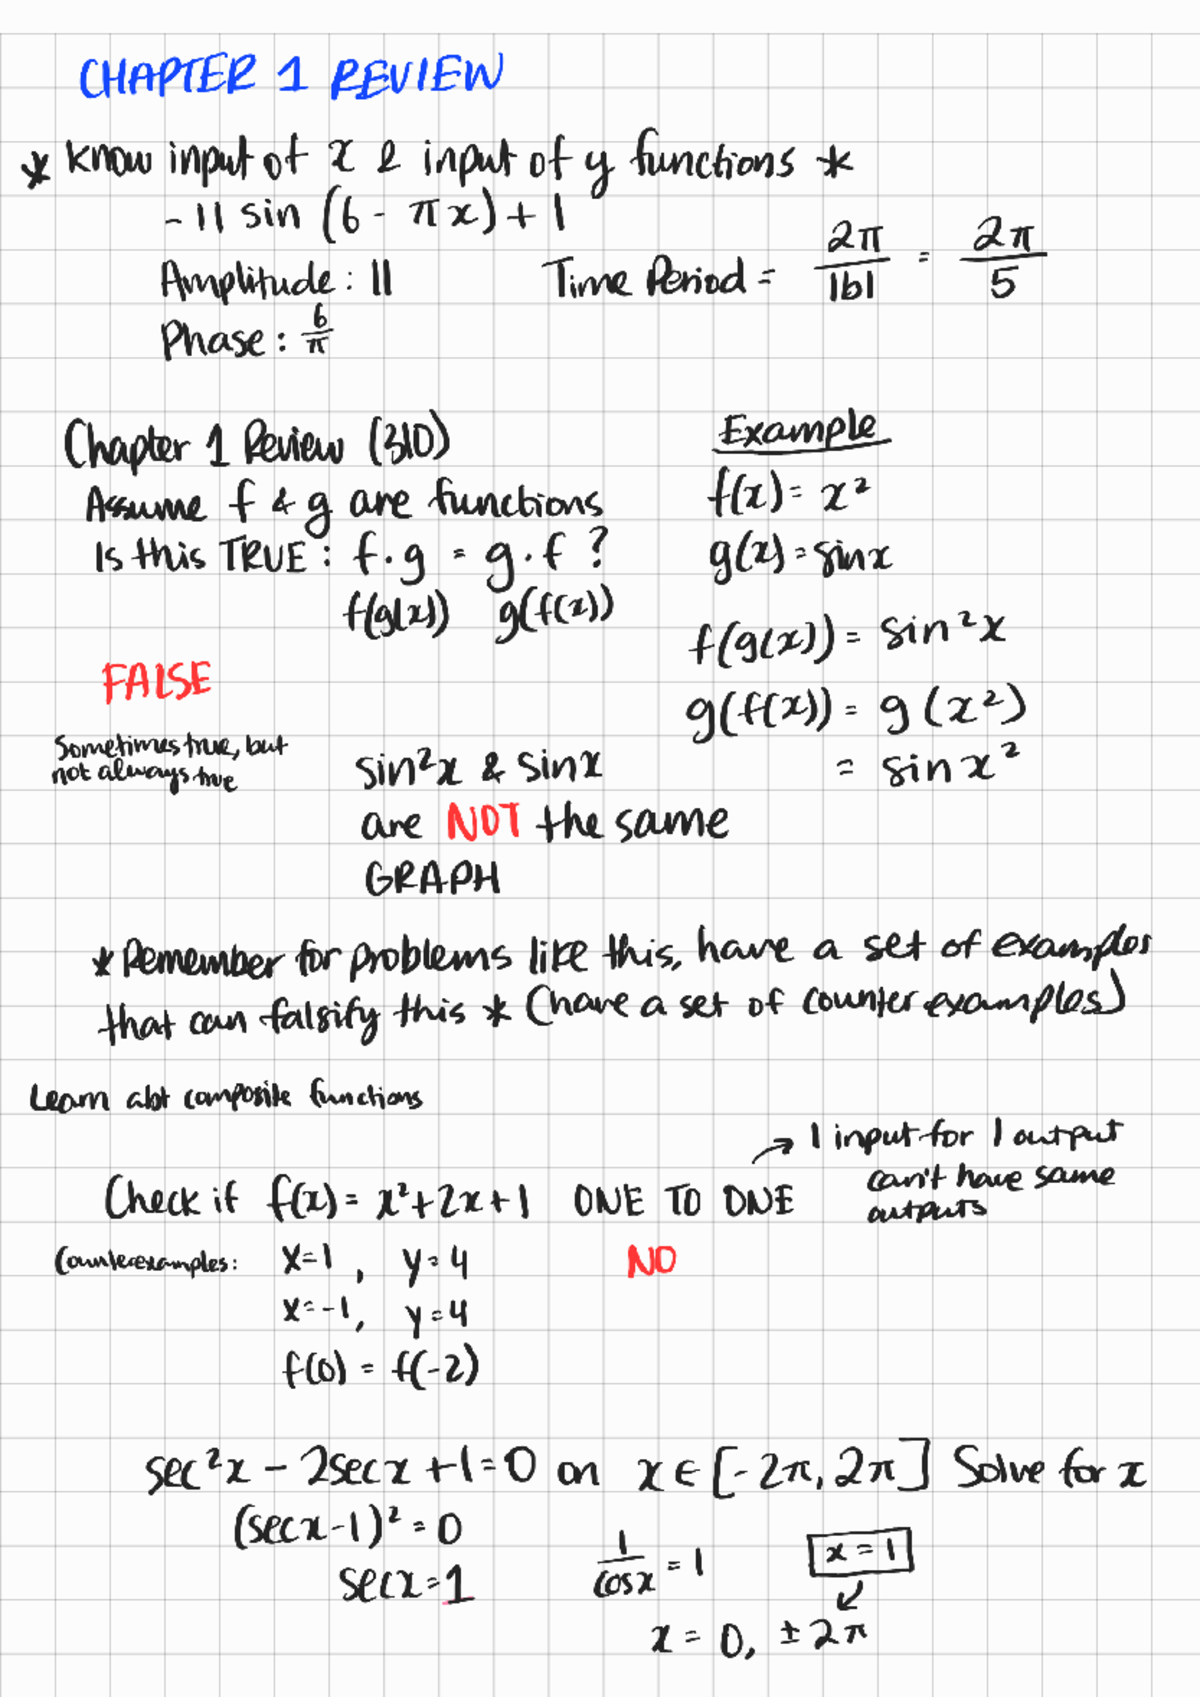 CHAPTER 1 REVIEW
* know input of x & input of y functions *
-11 sin (6 - πx) + 1
Amplitude: 11
Time Period = 2π/|b| = 2π/5
Phase: 6/π
Chapter 1 Review (310)
Assume f & g are functions
Is this TRUE: f·g = g·f ?
f(g(x)) g(f(x))
FALSE
Sometimes true, but
not always true
Example
f(x) = x²
g(x) = sinx
f(g(x)) = sin²x
g(f(x)) = g(x²)
= sin x²
sin²x & sinx
are NOT the same
GRAPH
* Remember for problems like this, have a set of examples
that can falsify this * (have a set of counter examples)
Learn abt composite functions
Check if f(x) = x²+2x+1 ONE TO ONE
→ 1 input for 1 output
can't have same
outputs
Counterexamples: x=1, y=4
NO
x=-1, y=4
f(0) = f(-2)
sec²x - 2secx +1=0 on x∈[-2π, 2π] Solve for x
(secx-1)² = 0
secx=1
1/cosx = 1
x = 1
x = 0, ±2π